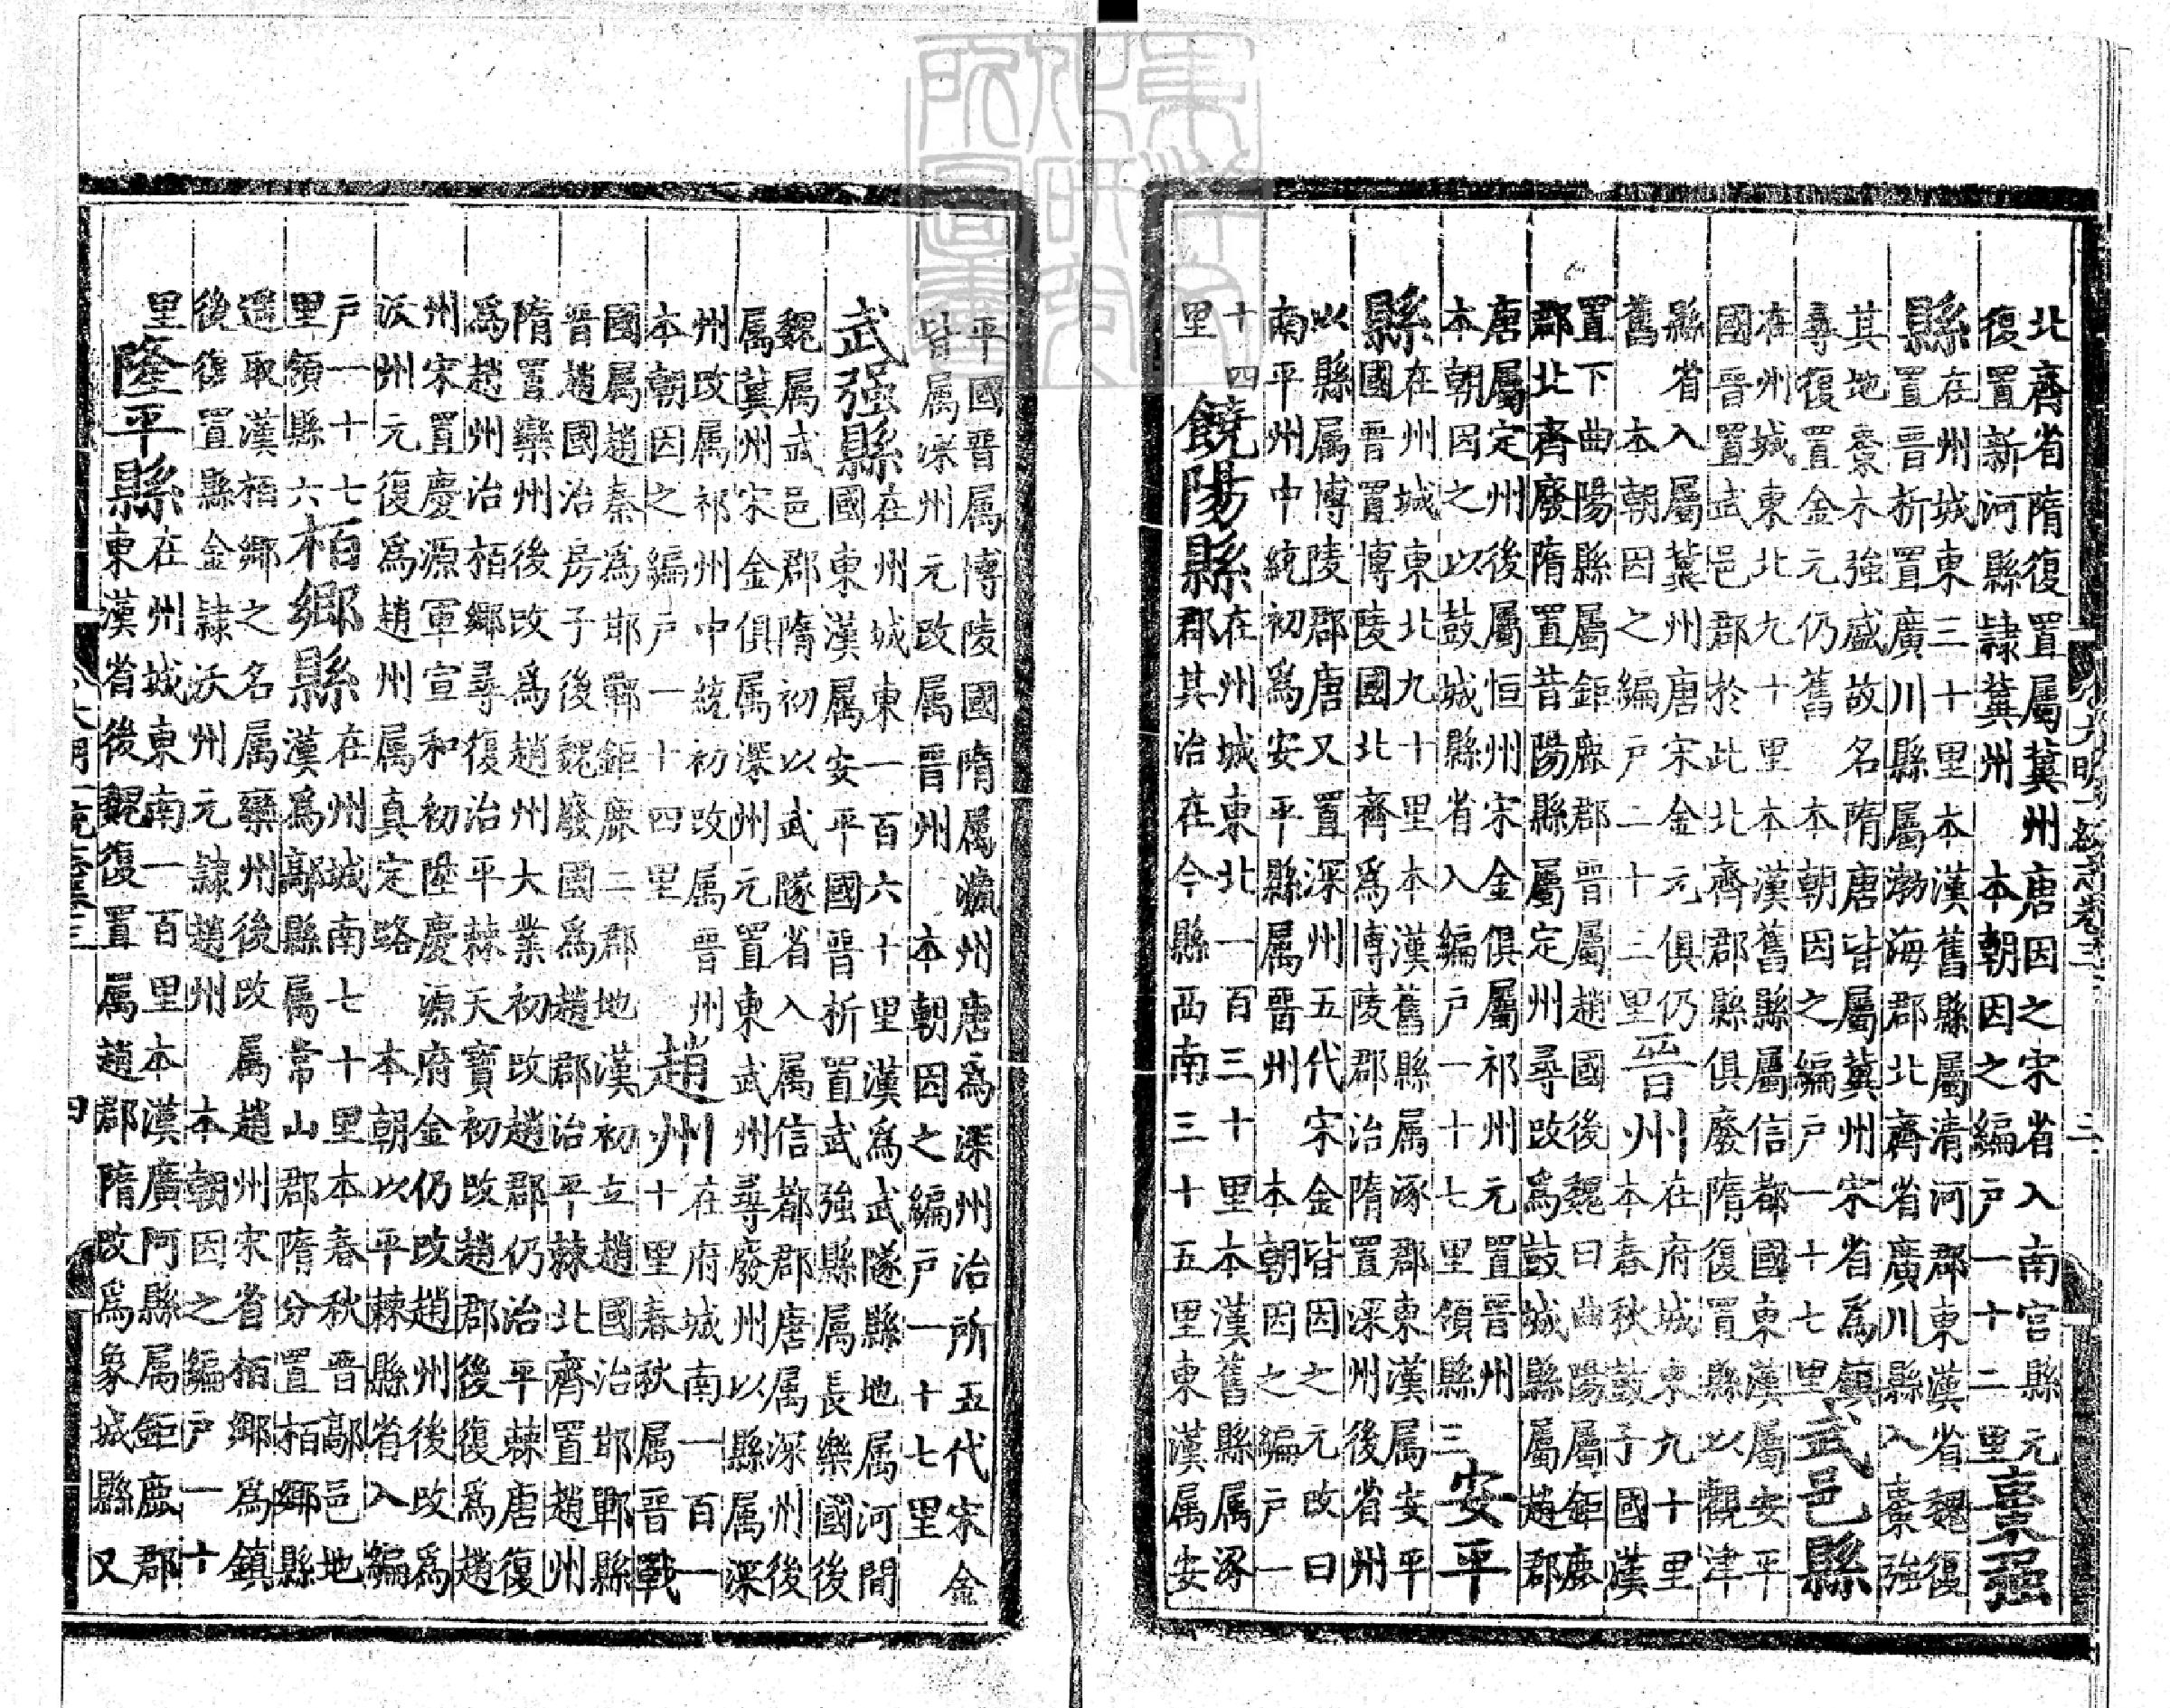 北齊省隋復置屬冀州唐因之宋省入南宮縣元
復置新河縣隸冀州　本朝因之編戶一十二里
棗强
縣
在州城東三十里本漢舊縣屬清河郡東漢省魏復
置晉析置廣川縣屬渤海郡北齊省廣川縣入棗強
其地棗木強盛故名隋唐皆屬冀州宋省爲鎮
尋復置金元仍舊　本朝因之編戶一十七里
武邑縣
在州城東北九十里本漢舊縣屬信都國東漢屬安平
國晉置武邑郡於此北齊郡縣俱廢隋復置縣以觀津
縣省入屬冀州唐宋金元俱仍
舊　本朝因之編戶二十三里
晉州
在府城東九十里
本春秋鼓子國漢
置下曲陽縣屬鉅鹿郡晉屬趙國後魏曰曲陽屬鉅鹿
郡北齊廢隋置昔陽縣屬定州尋改爲鼓城縣屬趙郡
唐屬定州後屬恒州宋金俱屬祁州元置晉州
本朝因之以鼓城縣省入編戶一十七里領縣三
安平
縣
在州城東北九十里本漢舊縣属涿郡東漢属安平
國晉置博陵國北齊爲博陵郡治隋置深州後省州
以縣属博陵郡唐又置深州五代宋金皆因之元改曰
南平州中統初爲安平縣属晉州　本朝因之編戶一
十四
里
饒陽縣
在州城東北一百三十里本漢舊縣属涿
郡其治在今縣西南三十五里東漢属安
大明一統志卷三
三
平國晉属博陵國隋属瀛州唐爲深州治所五代宋金
皆属深州元改属晉州　本朝因之編戶一十七里
武強縣
在州城東一百六十里漢爲武隧縣地属河間
國東漢属安平國晉析置武強縣属長樂國後
魏属武邑郡隋初以武隧省入属信都郡唐属深州後
属冀州宋金俱属深州元置東武州尋廢州以縣属深
州改属祁州中統初改属晉州
本朝因之編戶一十四里
趙州
在府城南一百一
十里春秋属晉戰
國属趙秦爲邯鄲鉅鹿二郡地漢初立趙國治邯鄲縣
晉趙國治房子後魏廢國爲趙郡治平棘北齊置趙州
隋置欒州後改爲趙州大業初改趙郡仍治平棘唐復
爲趙州治栢鄉尋復治平棘天寶初改趙郡後復爲趙
州宋置慶源軍宣和初陞慶源府金仍改趙州後改爲
沃州元復爲趙州属真定路　本朝以平棘縣省入編
戶一十七
里領縣六
栢鄉縣
在州城南七十里本春秋晉鄗邑地
漢爲鄗縣属常山郡隋分置栢鄉縣
遥取漢栢鄉之名属欒州後改属趙州宋省栢鄉爲鎮
後復置縣金隸沃州元隸趙州　本朝因之編戶一十
里
隆平縣
在州城東南一百里本漢廣阿縣属鉅鹿郡
東漢省後魏復置属趙郡隋改爲象城縣又
大明一統志卷三
四